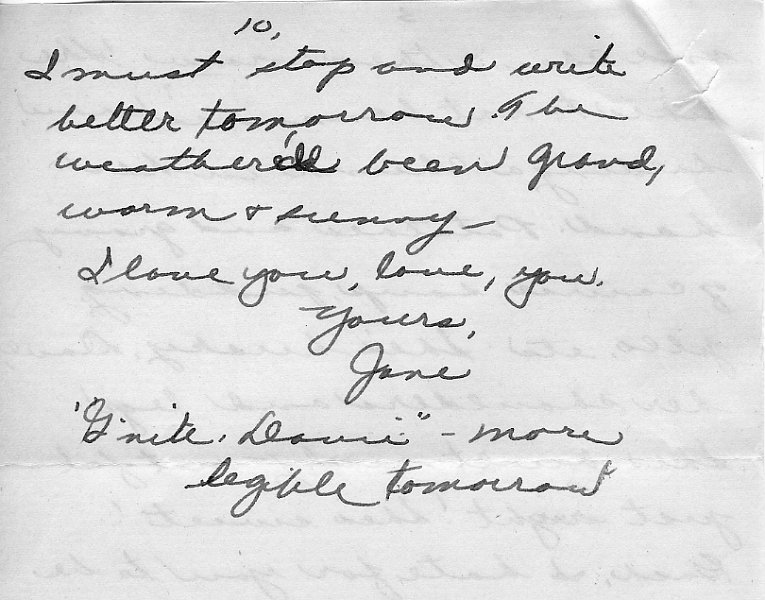 10,
I must stop and write
better tomorrow. The
weather'd been grand,
warm + sunny —
I love you, love, you.
Yours,
Jane
"G'nite, Davie" - more
legible tomorrow